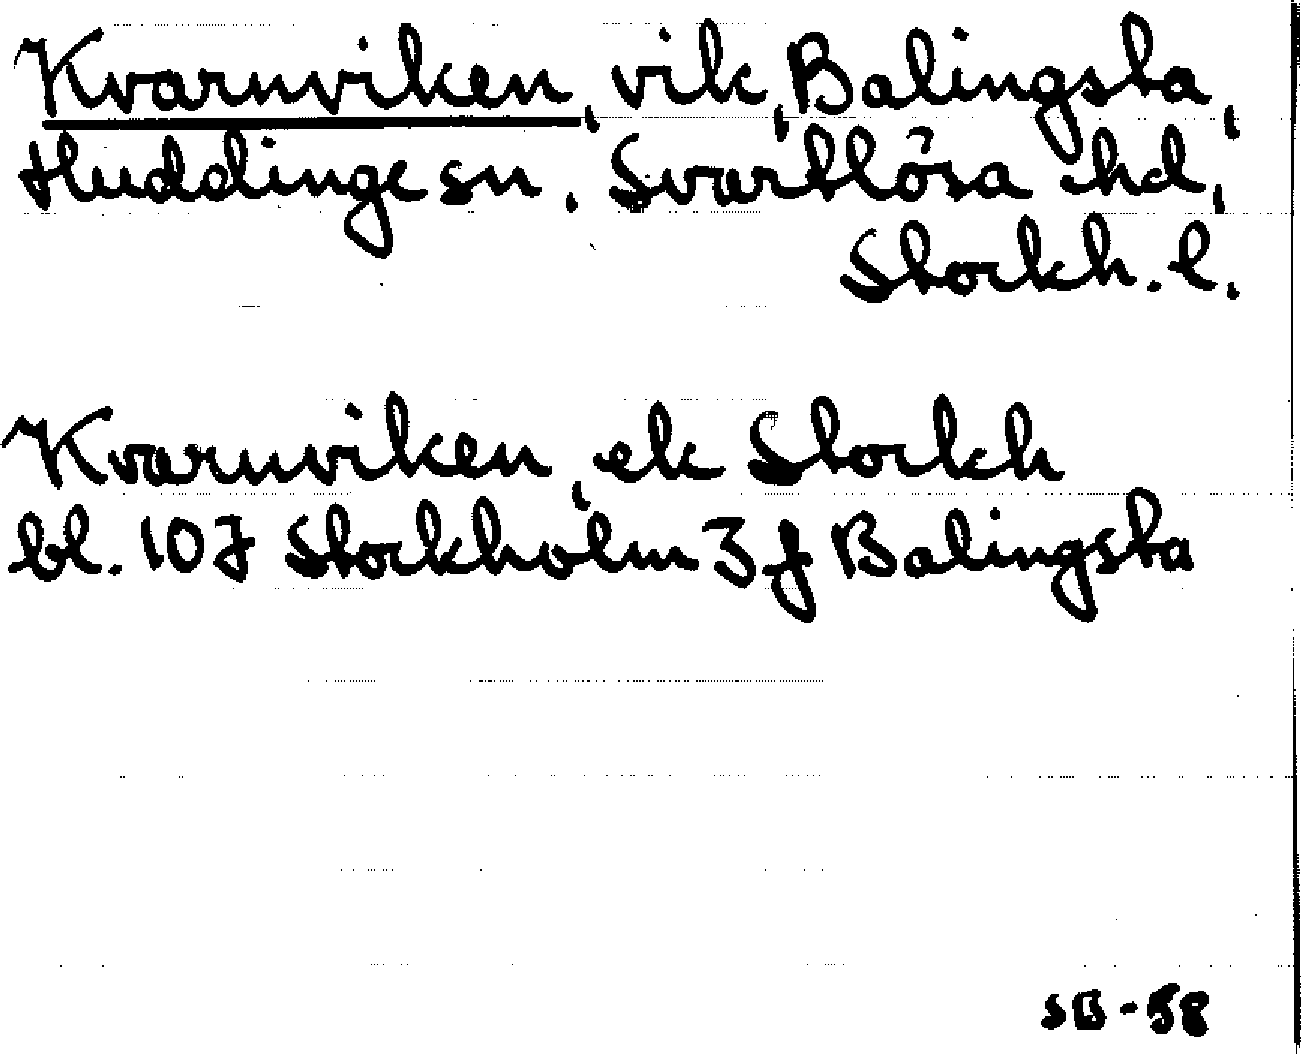 Kvarnviken, vik, Balingsta,
Huddinge sn, Svartlösa hd,
Stockh. l.
Kvarnviken, ek Stockh
bl. 107 Stockholm 3 f Balingsta
SB-58